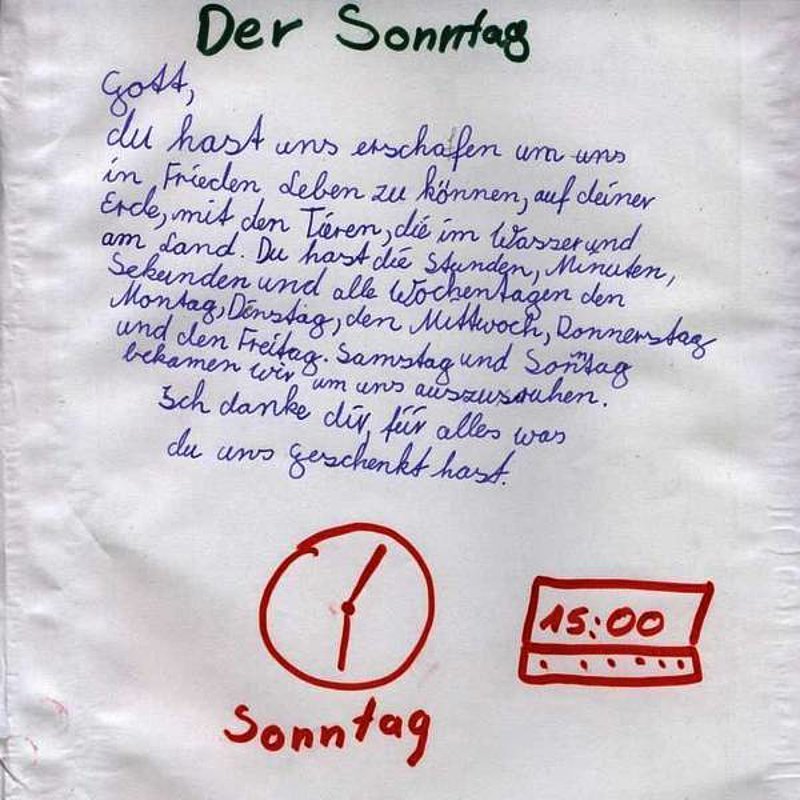 Der Sonntag
Gott,
du hast uns erschafen um uns
in Frieden Leben zu können, auf deiner
Erde, mit den Tieren, die im Wasser und
am Land. Du hast die Stunden, Minuten,
Sekunden und alle Wochentagen den
Montag, Dinstag, den Mittwoch, Donnerstag
und den Freitag. Samstag und Sonntag
bekamen wir um uns auszuruhen.
Ich danke dir, für alles was
du uns geschenkt hast.
15:00
Sonntag